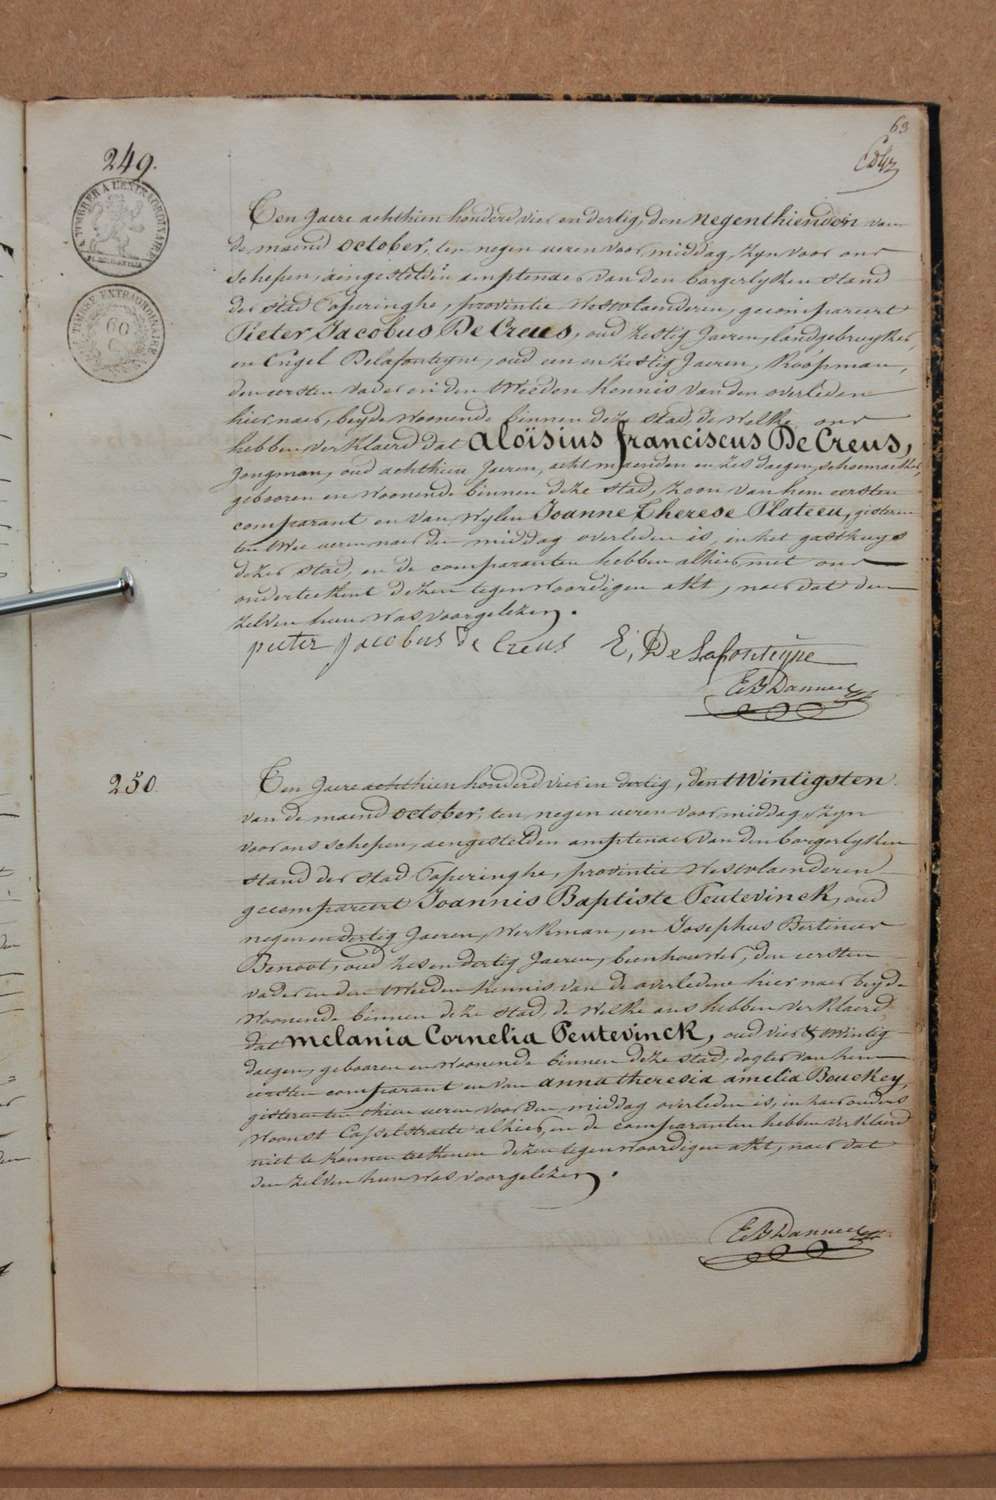 63
249.
A TIMBRER A L'EXTRAORDINAIRE
TIMBRE EXTRAORDINAIRE
60
Een Jaere achthien honderd vier en dertig, den negenthienden van
de maend october, ten negen ueren voor middag, zyn voor ons
schepen, aengestelden amptenaer van den borgerlyken stand
der stad Poperinghe, provintie Westvlaenderen, gecompareert
Pieter Jacobus De Creus, oud zestig Jaeren, landgebruyker,
en Engel Delafonteyne, oud een en zestig Jaeren, Koopman,
den eersten vader en den tweeden kennis van den overleden
hier naer, beyde woonende binnen deze stad, de welke ons
hebben verklaerd dat Aloïsius Franciscus De Creus,
Jongman, oud achthien Jaeren, acht maenden en zes daegen, schoenmaeker,
gebooren en woonende binnen deze stad, zoon van hem eersten
comparant en van wylen Joanne Therese Plateeu, gisteren
ten twee ueren naer den middag overleden is, in het gasthuys
dezer stad, en de comparanten hebben alhier met ons
onderteekent dezen tegenwoordigen akt, naer dat den
zelven hun was voorgelezen.
pieter Jacobus de Creus E. De Lafonteyne
250.
Een Jaere achthien honderd vier en dertig, den twintigsten
van de maend october, ten negen ueren voor middag, zyn
voor ons schepen, aengestelden amptenaer van den borgerlyken
stand der stad Poperinghe, provintie Westvlaenderen
gecompareert Joannis Baptiste Peutevinck, oud
negen en dertig Jaeren, werkman, en Josephus Bertinus
Benoot, oud zes en dertig Jaeren, beenhouwer, den eersten
vader en den tweeden kennis van de overledene hier naer beyde
woonende binnen deze stad, de welke ons hebben verklaerd
dat melania Cornelia Peutevinck, oud vier & twintig
daegen, gebooren en woonende binnen deze stad, dogter van hem
eersten comparant en van anna theresia amelia Bouckey,
gisteren ten thien ueren voor den middag overleden is, in haer ouders
woonst Casselstraete alhier, en de comparanten hebben verklaerd
niet te konnen teekenen dezen tegenwoordigen akt, naer dat
den zelven hun was voorgelezen.